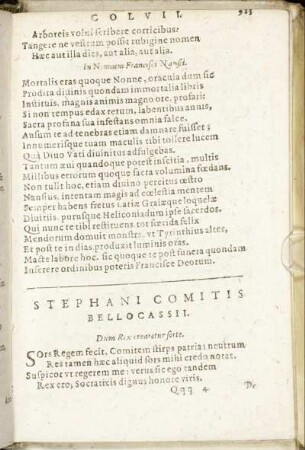 COLVII. 923
Arboreis volui scribere corticibus:
Tangere ne vestrum possit rubigine nomen
Hæc aut illa dies, aut alia, aut alia.
In Nonnum Francisci Nansi.
Mortalis eras quoque Nonne, oracula dum sic
Prodita divinis quondam immortalia libris
Instituis, magnis animis magno ore, profari?
Si non tempus edax rerum, labentibus annis,
Sacra profana sua infestans omnia falce,
Ausum te ad tenebras etiam damnare fuisset:
Innumerisque tuam maculis tibi tollere lucem
Quâ Diuo Vati diuinitus adfulgebas.
Tantum æui quandoque potest inscitia, multis
Millibus errorum quoque sacra volumina fœdans.
Non tulit hoc, etiam diuino percitus œstro
Nansius, intentam magis ad cœlestia mentem
Semper habens fretus Latiæ Graiæque loquelæ
Diuitiis, purusque Heliconiadum ipse sacerdos.
Qui nunc te tibi restituens, tot fœcida felix
Mendorum domuit monstra, vt Tyrinthius alter,
Et post te in dias produxit luminis oras.
Macte labore hoc, sic quoque te post funera quondam
Inserere ordinibus poteris Francisce Deorum.
STEPHANI COMITIS
BELLOCASSII.
Dum Rex crearetur sorte.
SOrs Regem fecit, Comitem stirps patria: neutrum
Res tamen hæc aliquid sors mihi credo notat.
Suspicor vt regerem me: verus sic ego tandem
Rex ero, Socraticis dignus honore viris.
Qqq 4 De